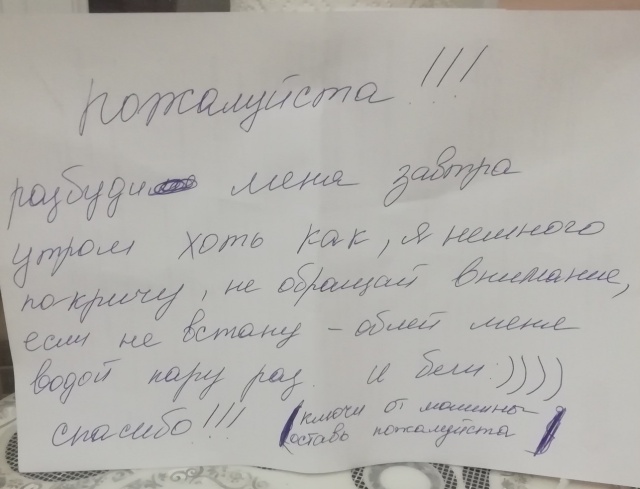 пожалуйста!!!
разбуди меня завтра
утром хоть как, я немного
покричу, не обращай внимание,
если не встану - облей меня
водой пару раз. и беги:))))
спасибо!!! (ключи от машины
оставь пожалуйста)